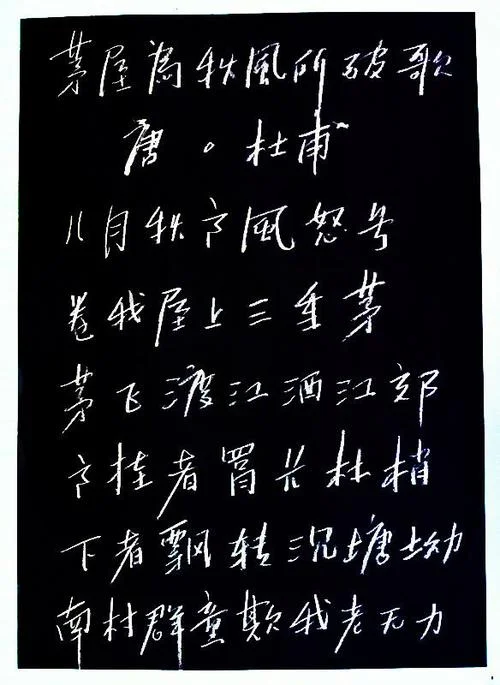 茅屋為秋風所破歌
唐。杜甫
八月秋高風怒号
卷我屋上三重茅
茅飞渡江洒江郊
高挂者罥长林梢
下者飘转沉塘坳
南村群童欺我老无力